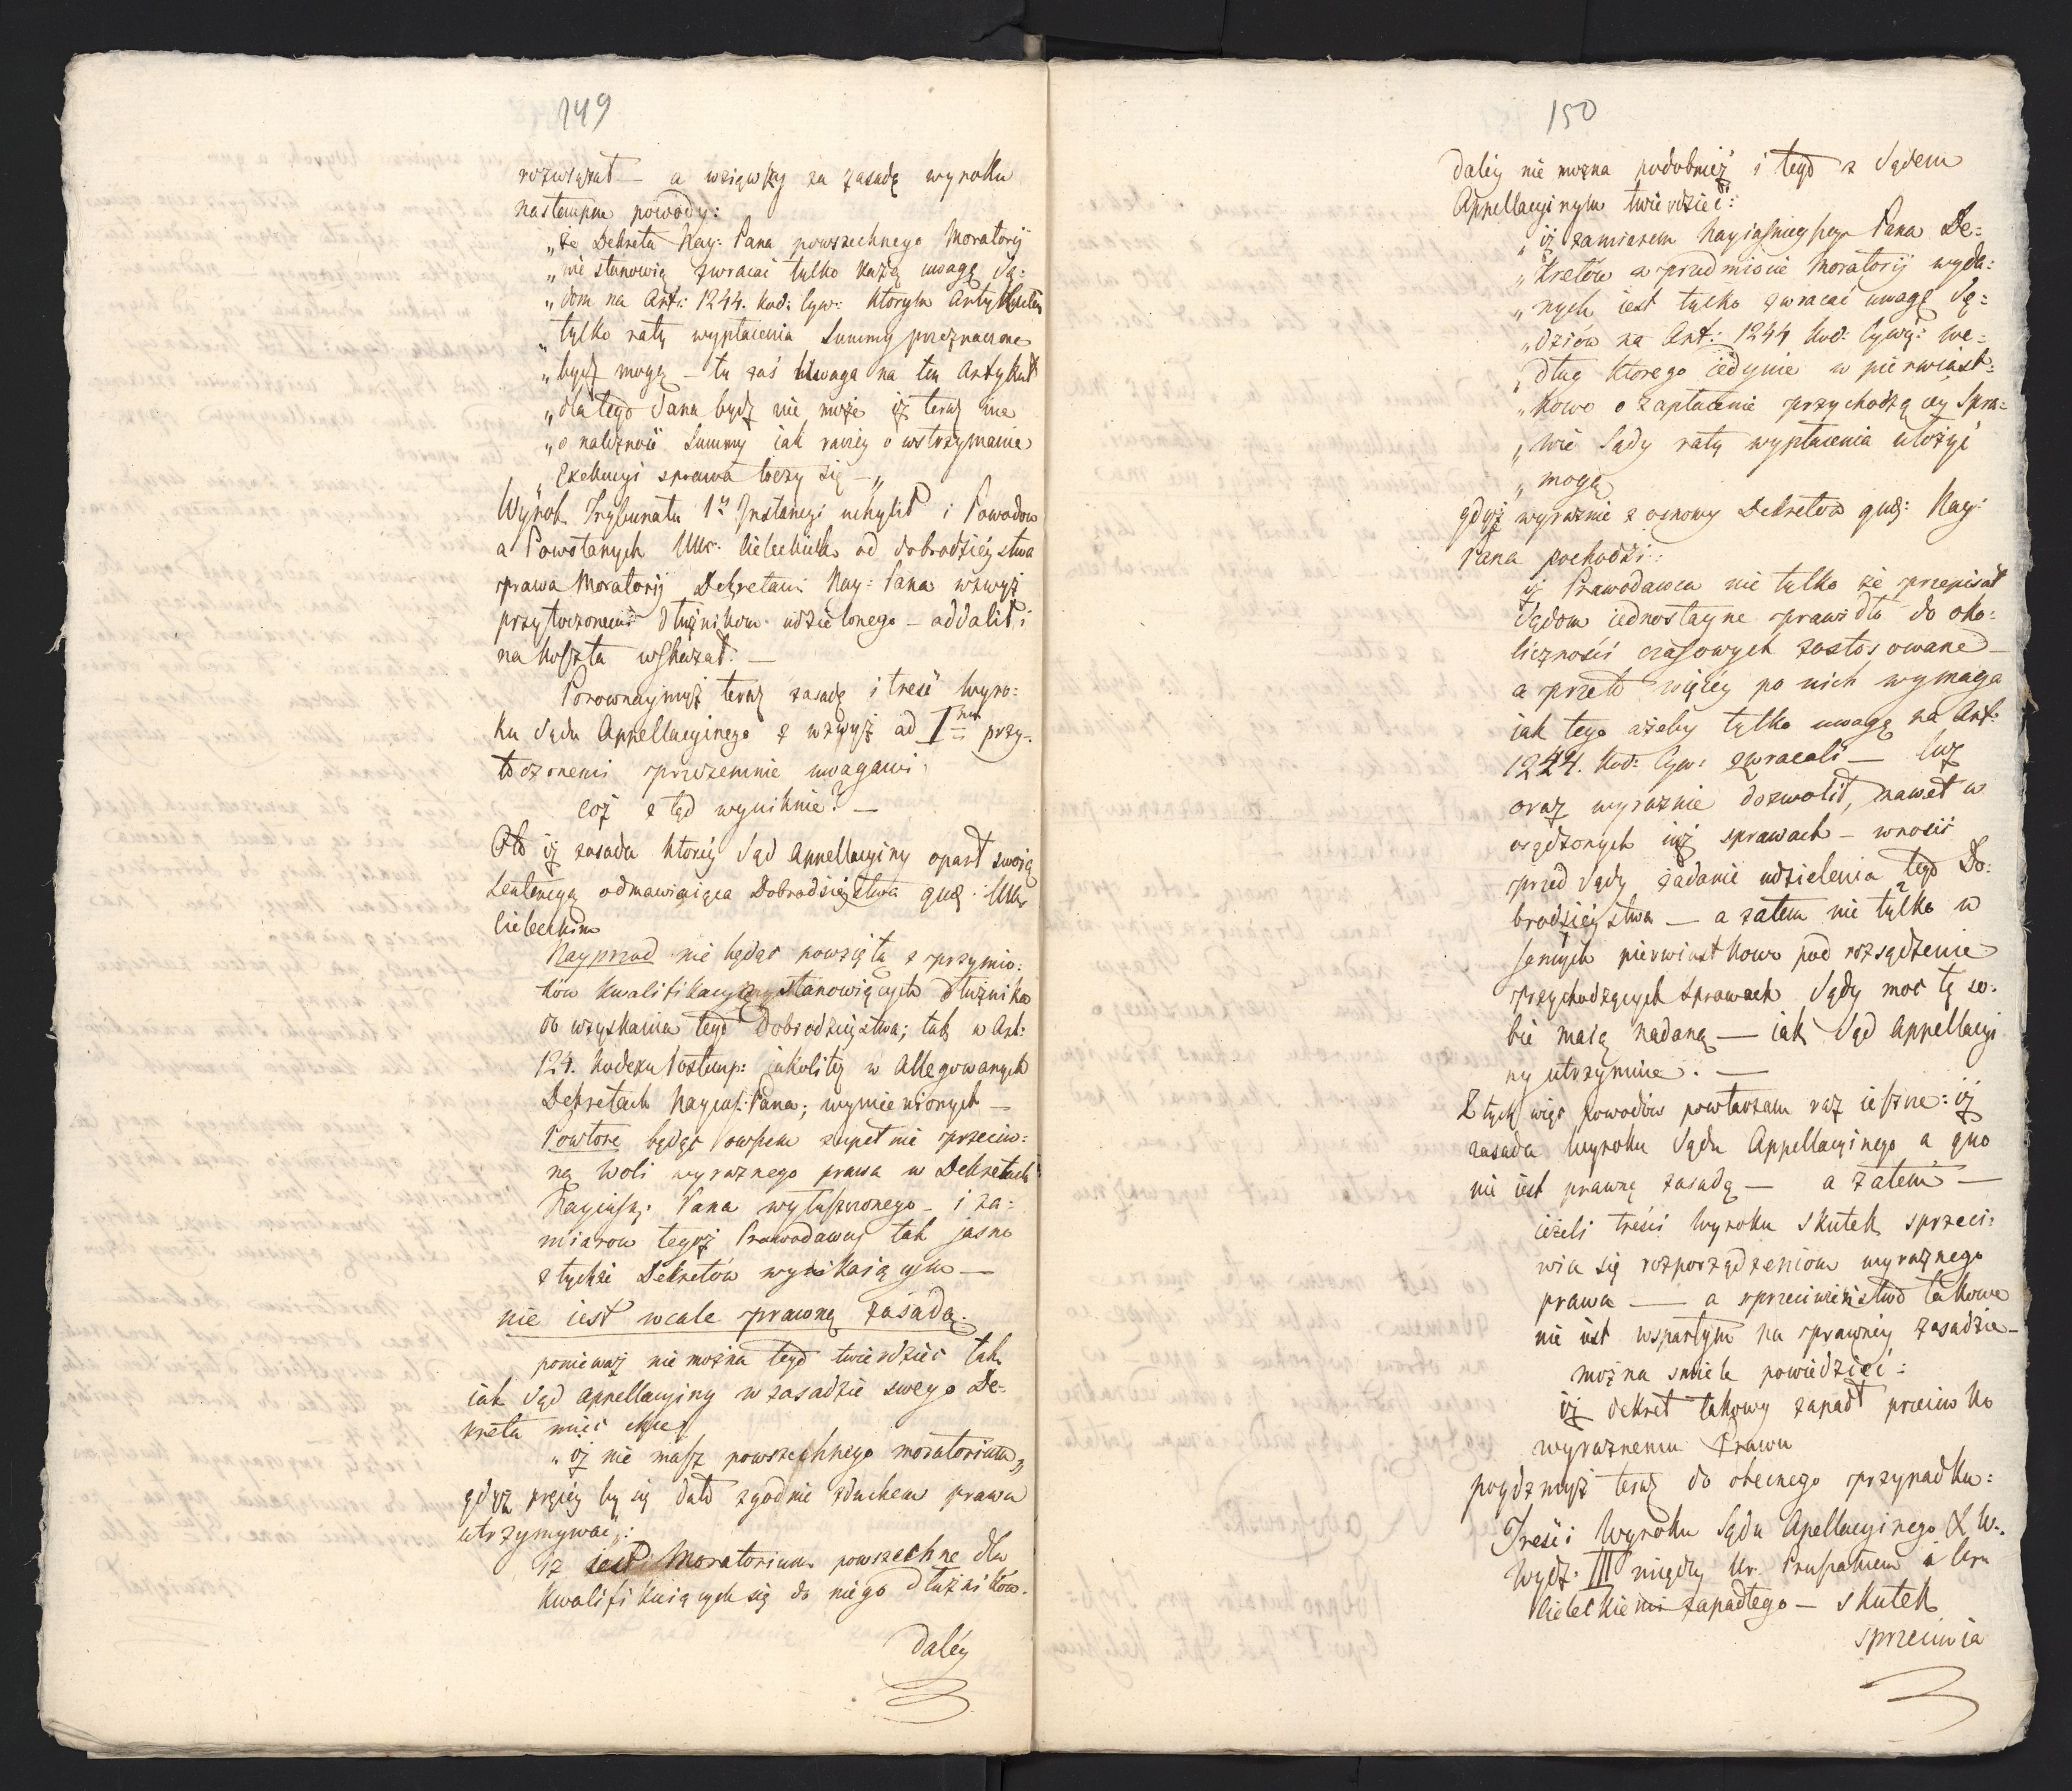 149
rozwiązał — a wziąwszy za zasadę wyroku
nastempne powody:
„że Dekreta Nay: Pana powszechnego Moratorij
„nie stanowią zwracać tylko każą uwagę Są=
„dom na Art: 1244. Kod: Cyw: którym Artykułem
„tylko raty wypłacenia Summy przeznaczone
„bydź mogą — tu zaś Uwaga na ten Artykuł
„dla tego dana bydź nie może iż teraz nie
„o należność Summy iak raczey o wstrzymanie
„Exekucyi sprawa toczy się —„
Wyrok Trybunału 1ey Instancyi uchylił i Powodow
a Powołanych Ww. Cieleckich od dobrodzieystwa
prawa Moratorij Dekretami Nay: Pana wzwyż
przytoczonemi Dłużnikom udzielonego — oddalił i
na koszta wskazał. —
Porownaymyż teraz zasadę i treść Wyro=
ku Sądu Appellacyinego z wzwyż ad Imum przy=
toczonemi przezemnie uwagami
coż z tąd wyniknie? —
Oto iż zasada ktorey Sąd Appellacyiny oparł swoią
Sentencyą odmawiaiącą Dobrodzieystwa quaes: Ww.
Cieleckim
Nayprzod nie będąc powziętą z przymio=
tów kwalifikacyą stanowiących dłużnika
do wzyskania tego Dobrodzieystwa; tak w Art:
124. Kodexu Postemp: iakoliteż w allegowanych
Dekretach Nayias: Pana; wymienionych —
Powtore będąc owszem zupełnie przeciw=
ną Woli wyraznego prawa w Dekretach
Nayiaśn: Pana wyłuszczonego — i za=
miarow tegoż Prawodawcy tak jasno
z tychże Dekretów wynikaiącym —
nie iest wcale prawną zasadą.
ponieważ nie można tego twierdzić tak
iak Sąd Appellacyiny w zasadzie swego De=
kretu mieć chce
„iż nie masz powszechnego moratorium„
gdyż prędzey by się dało zgodnie z duchem prawa
utrzymywać:
iż iest Moratorium powszechne dla
kwalifikuiących się do niego Dłużników.
Daléy
150
Daléy nie można podobnież i tego z Sądem
Appellacyinym twierdzieć:
„iż zamiarem Nayiaśnieyszego Pana De=
„kretów w przedmiocie Moratorij wyda=
„nych iest tylko zwracać uwagę Sę=
„dziów na Art: 1244 Kod: Cywi: we=
„dług ktorego iedynie w pierwiast=
„kowo o zapłacenie przychodzącey Spra=
„wie Sądy raty wypłacenia ułożyć
„mogą
gdyż wyraźnie z osnowy Dekretów quaes: Nay:
Pana pochodzi:
iż Prawodawca nie tylko że przepisał
Sądom iednostayne prawidło do oko=
liczności czasowych zastosowane —
a przeto więcéy po nich wymaga
iak tego ażeby tylko uwagę na Art:
1244. Kod: Cyw: zwracali — lecz
oraz wyraznie dozwolił, nawet w
osądzonych iuż sprawach — wnosić
przed Sądy żądanie udzielenia tego Do=
brodzieystwa — a zatem nie tylko w
samych pierwiastkowo pod rozsądzenie
przychodzących Sprawach Sądy moc tę so=
bie maią nadaną — iak Sąd Appellacyi
ny utrzymuie. —
Z tych więc powodów powtarzam raz ieszcze: iż
zasada Wyroku Sądu Appellacyinego a quo
nie iest prawną zasadą — a zatem —
ieżeli treści Wyroku skutek sprzeci=
wia się rozporządzeniom wyraznego
prawa — a sprzeciwieństwo takowe
nie iest wspartym na prawnéy zasadzie —
można smiele powiedzieć:
iż dekret takowy zapadł przeciwko
wyraznemu Prawu
poydzmyż teraz do obecnego przypadku:
Treści Wyroku Sądu Apellacyinego X. W.
Wydz: III między Ur. Pruskim a Ur.
Cieleckiemi zapadłego — skutek
sprzeciwia